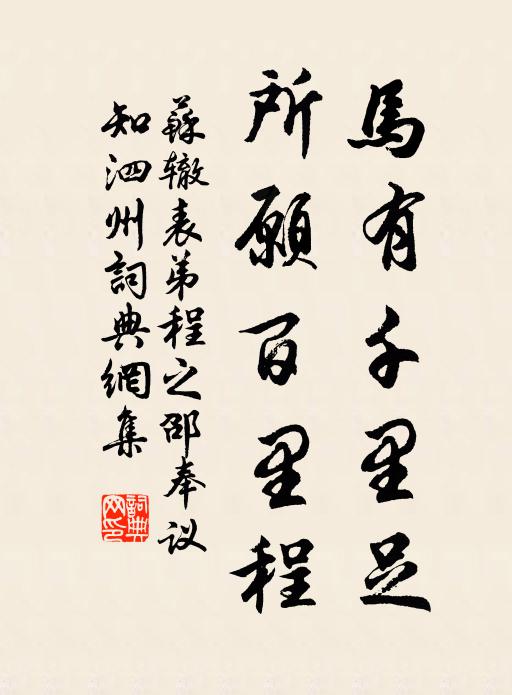 馬有千里足
所願百里程
蘇辙表弟程之邵奉议
知泗州詞典網集
詞典
网印